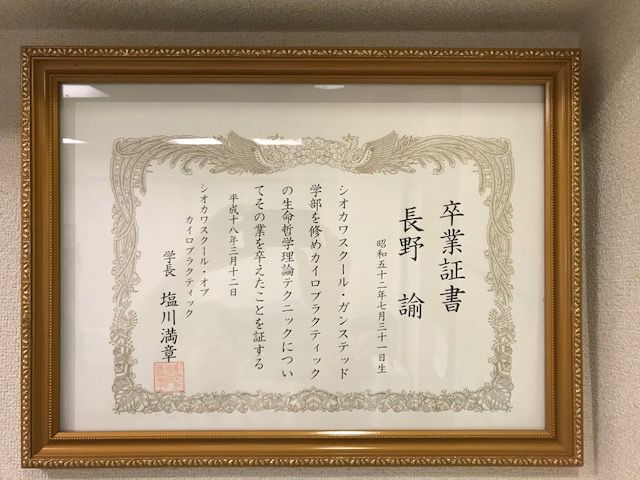 卒業証書
長野 諭
昭和五十二年七月三十一日生
シオカワスクール・ガンステッド
学部を修めカイロプラクティック
の生命哲学理論テクニックについ
てその業を卒えたことを証する
平成十八年三月十二日
シオカワスクール・オブ
カイロプラクティック
学長 塩川満章